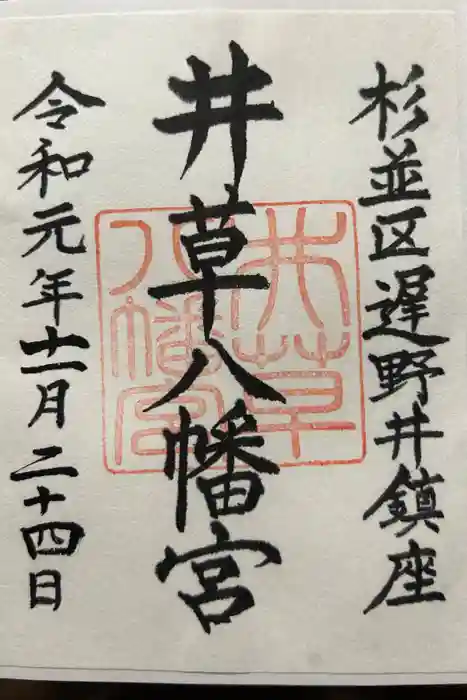 杉並区遅野井鎮座
井草八幡宮
令和元年十一月二十四日
井草
八幡宮